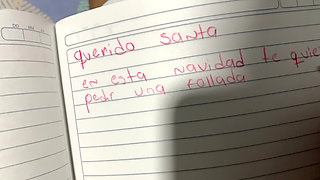 querido santa
en esta navidad te quie
pedir una follada